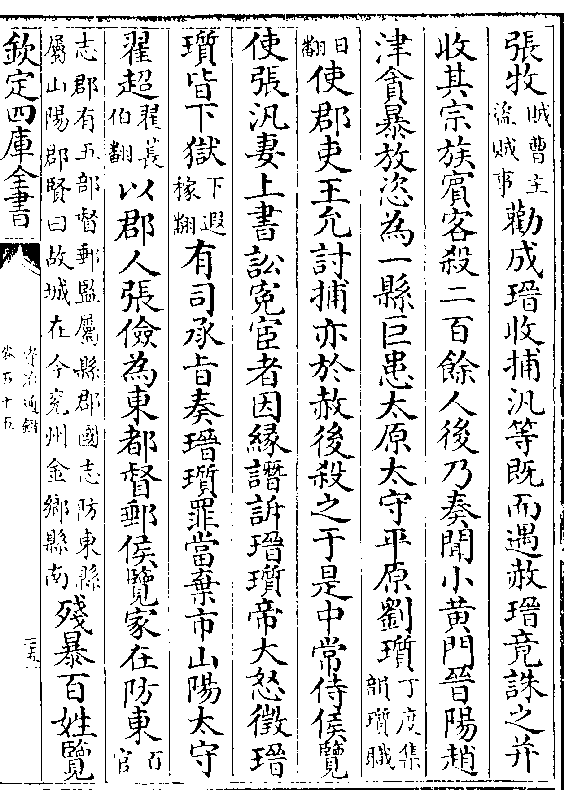 張牧賊曹主盜賊事勸成瑨收捕汎等既而遇赦瑨竟誅之并
收其宗族賓客殺二百餘人後乃奏聞小黄門晉陽趙
津貪暴放恣為一縣巨患太原太守平原劉瓆丁度集韻瓆職
日翻使郡吏王允討捕亦於赦後殺之于是中常侍侯覽
使張汎妻上書訟寃宦者因緣譖訴瑨瓆帝大怒徵瑨
瓆皆下獄下遐稼翻有司承旨奏瑨瓆罪當棄市山陽太守
翟超翟萇伯翻以郡人張儉為東部督郵侯覽家在防東百官
志郡有五部督郵監屬縣郡國志防東縣
屬山陽郡賢曰故城在今兖州金鄉縣南殘暴百姓覽
欽定四庫全書
資治通鑑
卷五十五